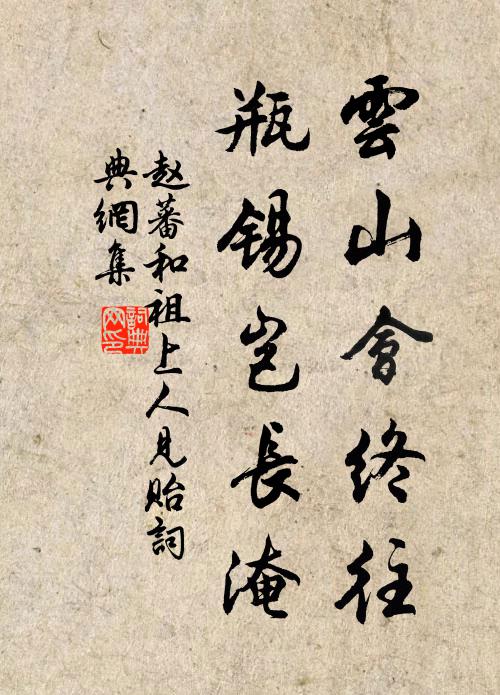 雲山會終往
瓶錫豈長淹
赵蕃和祖上人見貽詞
典網集
詞典网印